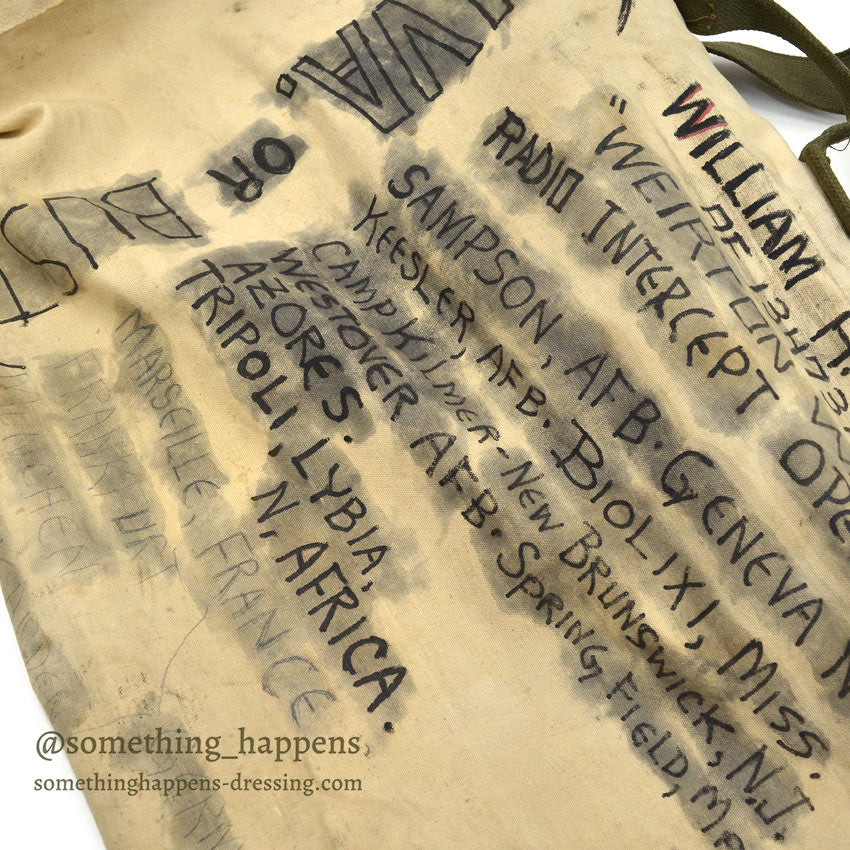 VA.
OR
BUST
WILLIAM H.
AF 13473
"WEIRTON W
RADIO INTERCEPT OPE
SAMPSON, AFB. GENEVA N
KEESLER, AFB. BIOLIXI, MISS.
CAMP KILMER - NEW BRUNSWICK, N.J.
WESTOVER AFB. SPRING, FIELD, MA
AZORES.
TRIPOLI, LYBIA,
N, AFRICA.
MARSEILLE, FRANCE
FRANKFURT
@something_happens
somethinghappens-dressing.com